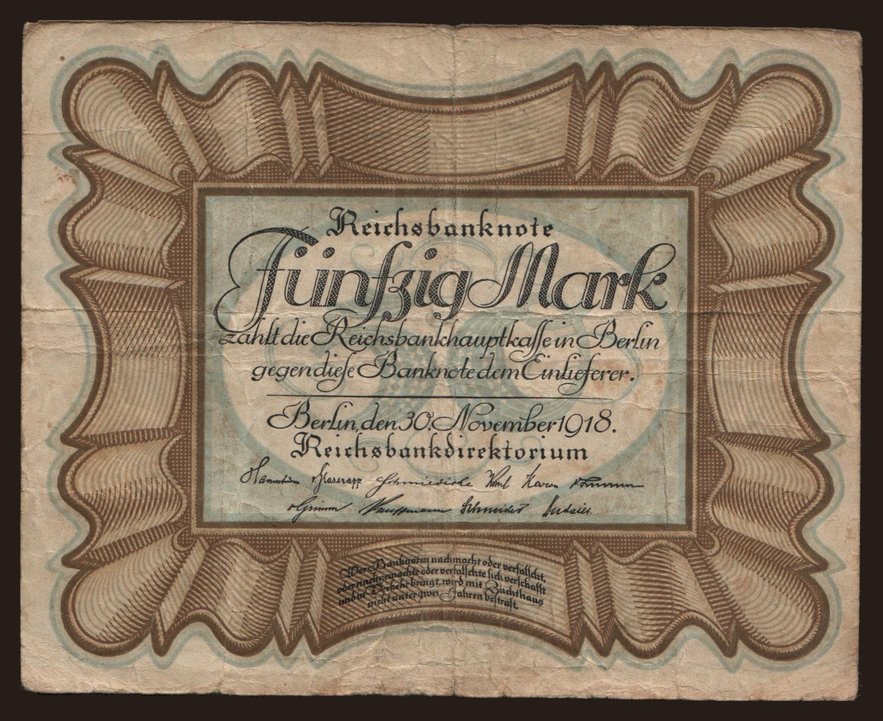 Reichsbanknote
Fünfzig Mark
zahlt die Reichsbankhauptkasse in Berlin
gegen diese Banknote dem Einlieferer.
Berlin, den 30. November 1918.
Reichsbankdirektorium
Schmiedicke Korn
Grimm Kauffmann Schneider
Wer Banknoten nachmacht oder verfälscht,
oder nachgemachte oder verfälschte sich verschafft
und in Verkehr bringt, wird mit Zuchthaus
nicht unter zwei Jahren bestraft.